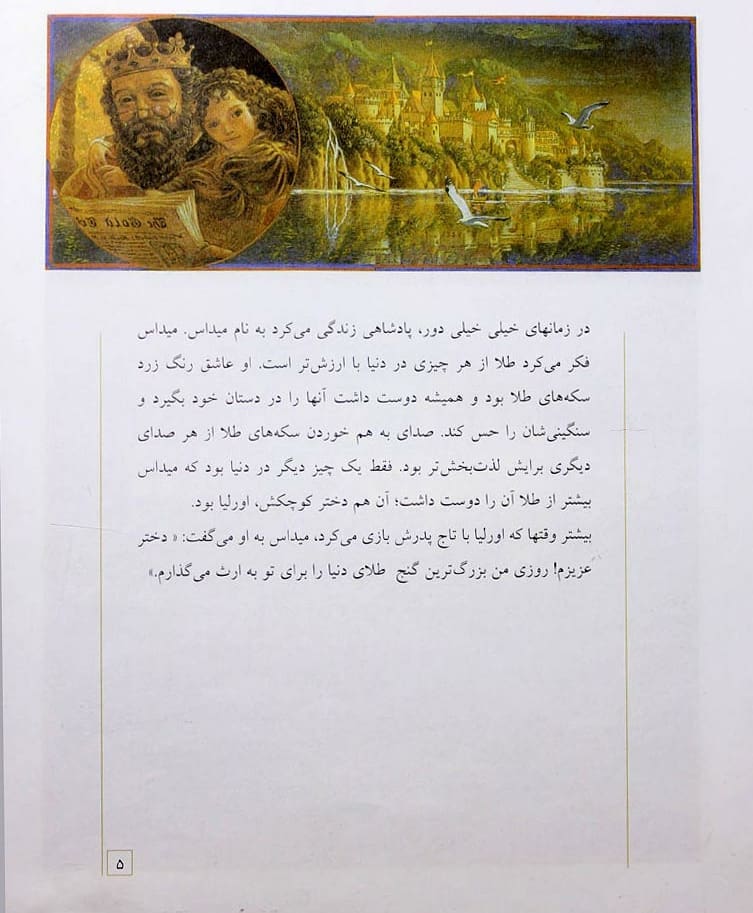 The Gold
در زمانهای خیلی خیلی دور، پادشاهی زندگی می‌کرد به نام میداس. میداس
فکر می‌کرد طلا از هر چیزی در دنیا با ارزش‌تر است. او عاشق رنگ زرد
سکه‌های طلا بود و همیشه دوست داشت آنها را در دستان خود بگیرد و
سنگینی‌شان را حس کند. صدای به هم خوردن سکه‌های طلا از هر صدای
دیگری برایش لذت‌بخش‌تر بود. فقط یک چیز دیگر در دنیا بود که میداس
بیشتر از طلا آن را دوست داشت؛ آن هم دختر کوچکش، اورلیا بود.
بیشتر وقتها که اورلیا با تاج پدرش بازی می‌کرد، میداس به او می‌گفت: « دختر
عزیزم! روزی من بزرگ‌ترین گنج طلای دنیا را برای تو به ارث می‌گذارم.»
۵